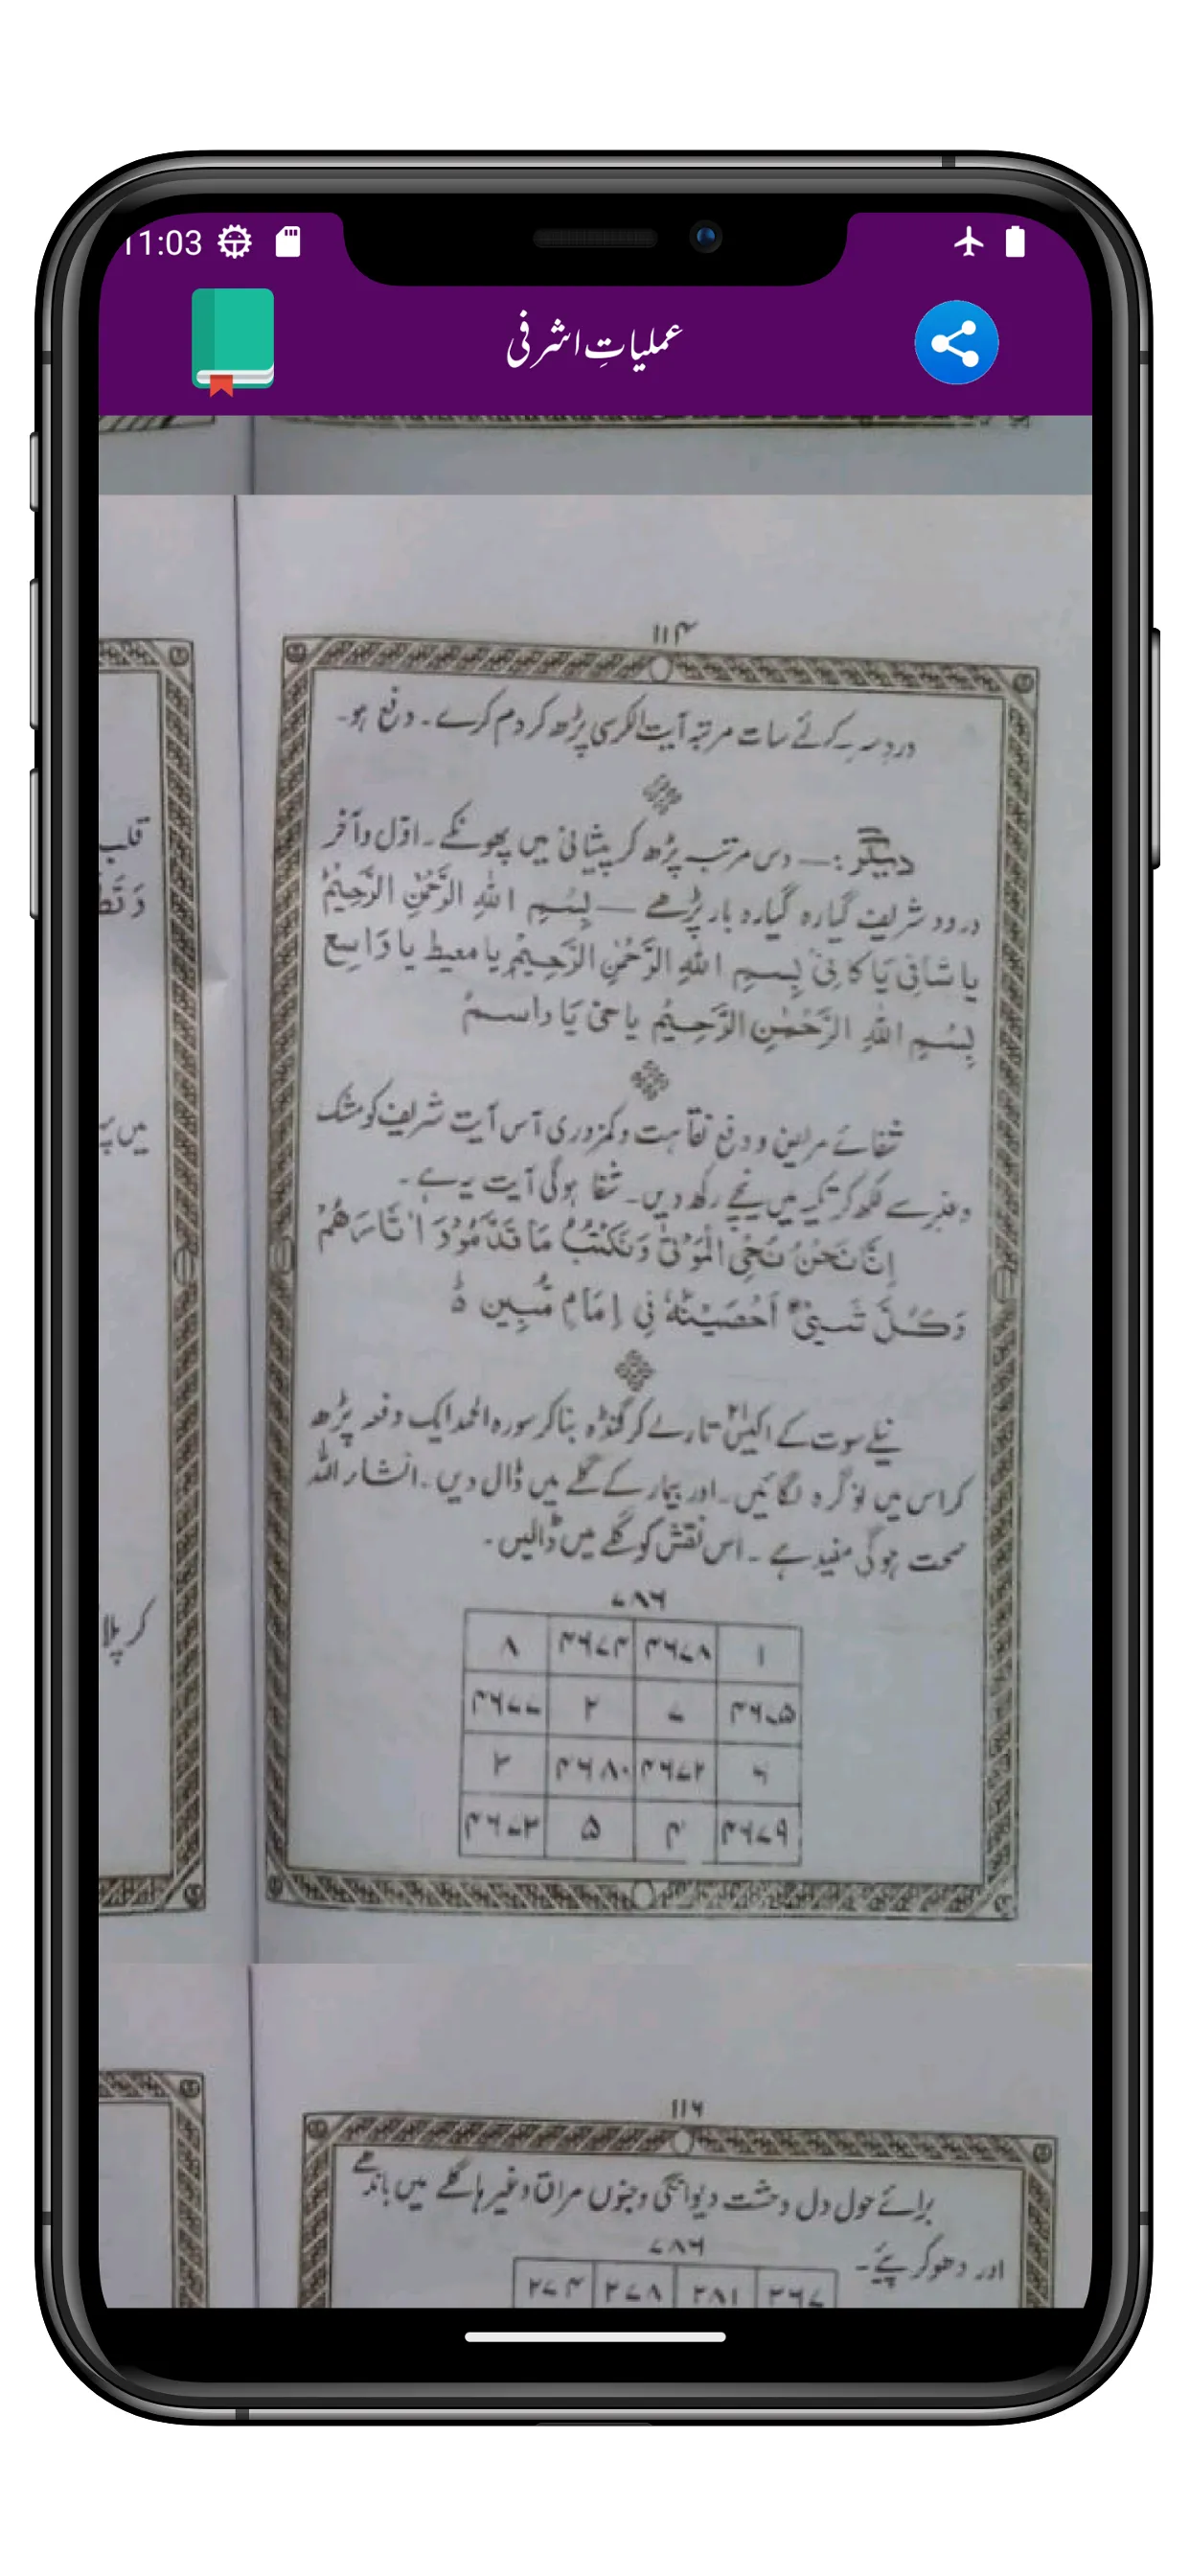 11:03
عملیاتِ اشرفی
۱۱۴
درد سر کے لئے سات مرتبہ آیت الکرسی پڑھ کر دم کرے۔ دفع ہو۔
دیگر:— دس مرتبہ پڑھ کر پیشانی میں پھونکے۔ اوّل و آخر
درود شریف گیارہ گیارہ بار پڑھے — بِسْمِ اللهِ الرَّحْمٰنِ الرَّحِيْمِ
يا شافی يَا كافی بِسمِ اللهِ الرَّحْمٰنِ الرَّحِيْمِ يا معيط يا وَاسِع
بِسْمِ اللهِ الرَّحْمٰنِ الرَّحِيْمِ ياحی يَا واسم
شفائے مریض و دفع نقاہت و کمزوری اس آیت شریف کو مشک
و عنبر سے لکھ کر تکیہ میں نیچے رکھ دیں۔ شفا ہوگی آیت یہ ہے۔
اِنَّا نَحْنُ نُحْيِ الْمَوْتٰى وَنَكْتُبُ مَا قَدَّمُوْا وَ اٰثَارَهُمْ
وَكُلَّ شَیْءٍ اَحْصَيْنٰهُ فِي اِمَامٍ مُّبِين ہ
نیلے سوت کے اکیس ۲۱ تار لے کر گنڈہ بنا کر سورہ الحمد ایک دفعہ پڑھ
کر اس میں نو گرہ لگائیں۔ اور بیمار کے گلے میں ڈال دیں۔ انشاء اللہ
صحت ہوگی مفید ہے۔ اس نقش کو گلے میں ڈالیں۔
۷۸۶
۱ ۴۶۷۸ ۴۶۷۴ ۸
۴۶۷۵ ۷ ۲ ۴۶۷۷
۶ ۴۶۷۲ ۴۶۸۰ ۳
۴۶۷۹ ۴ ۵ ۴۶۷۳
قلب
میں پہ
کر پلا
۱۱۶
برائے حول دل وحشت دیوانگی و جنوں مراق وغیرہا گلے میں باندھے
اور دھو کر پیئے۔
۷۸۶
۲۶۷ ۲۸۱ ۲۷۸ ۲۷۴